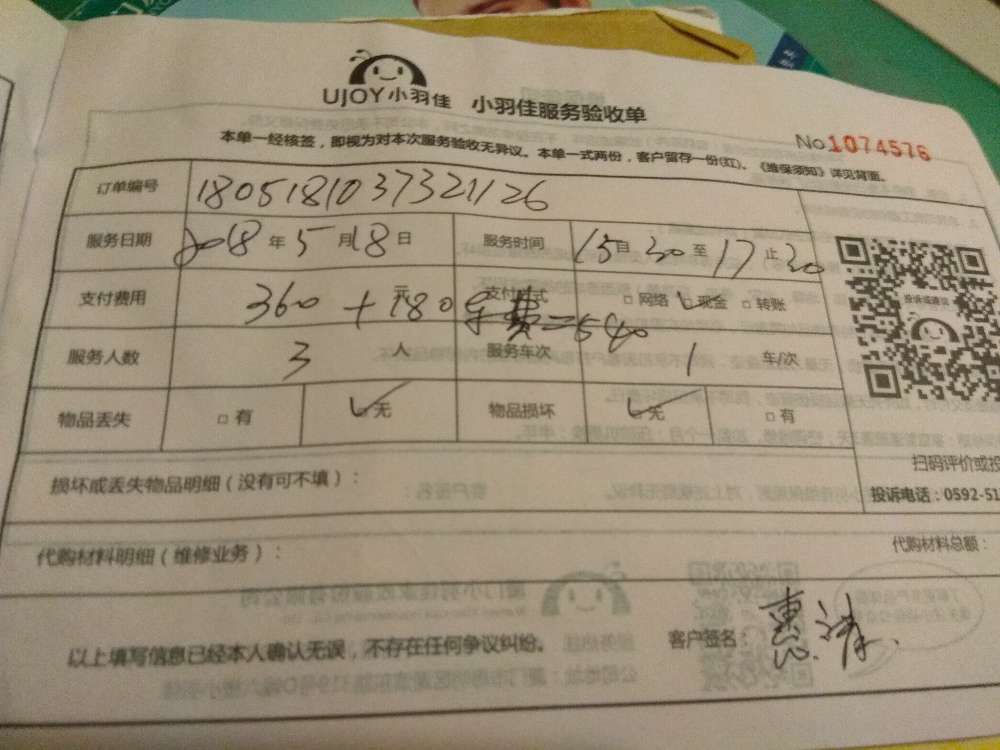 UJOY小羽佳 小羽佳服务验收单
No 1074576
本单一经核签，即视为对本次服务验收无异议。本单一式两份，客户留存一份(红)。《维保须知》详见背面。
订单编号 1805181037321126
服务日期 2018年5月18日 服务时间 15自30至17止30
支付费用 360+180 元 车费=540 支付方式 □网络 ✓现金 □转账
服务人数 3 人 服务车次 1 车/次
物品丢失 □有 ✓无 物品损坏 ✓无 □有
投诉或建议
扫码评价或投
损坏或丢失物品明细（没有可不填）：
投诉电话：0592-51
代购材料明细（维修业务）： 代购材料总额：
以上填写信息已经本人确认无误，不存在任何争议纠纷。 客户签名：